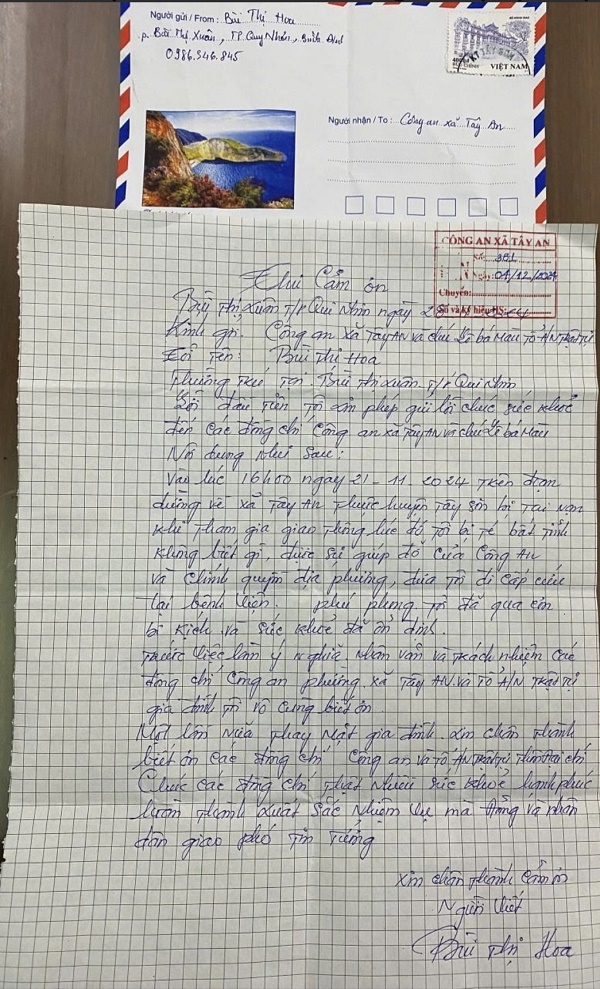 Người gửi / From : Bùi Thị Hoa
p. Bùi Thị Xuân, TP Quy Nhơn, Bình Định
0986.546.845
VIỆT NAM
Người nhận / To : Công an xã Tây An
CÔNG AN XÃ TÂY AN
Số: 381
Ngày: 04/12/2024
Chuyển:
Số và ký hiệu HS:
Thư Cảm ơn
Bùi Thị Xuân T/P Qui Nhơn ngày
Kính gửi: Công an xã Tây AN và chú Lê bá Màu Tổ A/N TRật Tự
Tôi Tên: Bùi Thị Hoa
Thường Trú Tại. Bùi Thị Xuân T/P Qui Nhơn
Lời đầu Tiên Tôi xin phép gửi lời chúc sức khoẻ
đến các đồng chí Công an xã Tây AN và chú Lê bá Màu
Nội dung như sau:
Vào lúc 16h00 ngày 21-11-2024 Trên đoạn
đường về xã Tây An Thuộc huyện Tây Sơn bị Tai Nạn
khi Tham gia giao Thông lúc đó tôi bị té bất tỉnh
không biết gì, được sự giúp đỡ của Công AN
và chính quyền địa phương, đưa Tôi đi cấp cứu
Tại bệnh viện. Tôi đã qua cơn
bi kịch và sức khoẻ đã ổn định.
Trước việc làm ý nghĩa nhân văn và trách nhiệm các
đồng chí Công an phường xã Tây AN và Tổ A/N TRật Tự
gia đình Tôi vô cùng biết ơn.
Một lần nữa Thay Mặt gia đình xin chân Thành
biết ơn các đồng chí Công an và tổ AN TRật Tự
Chúc các đồng chí Thật Nhiều sức khoẻ hạnh phúc
hoàn Thành xuất sắc Nhiệm vụ mà đảng và nhân
dân giao phó Tin Tưởng
xin chân Thành cảm ơn
Người viết
Bùi Thị Hoa